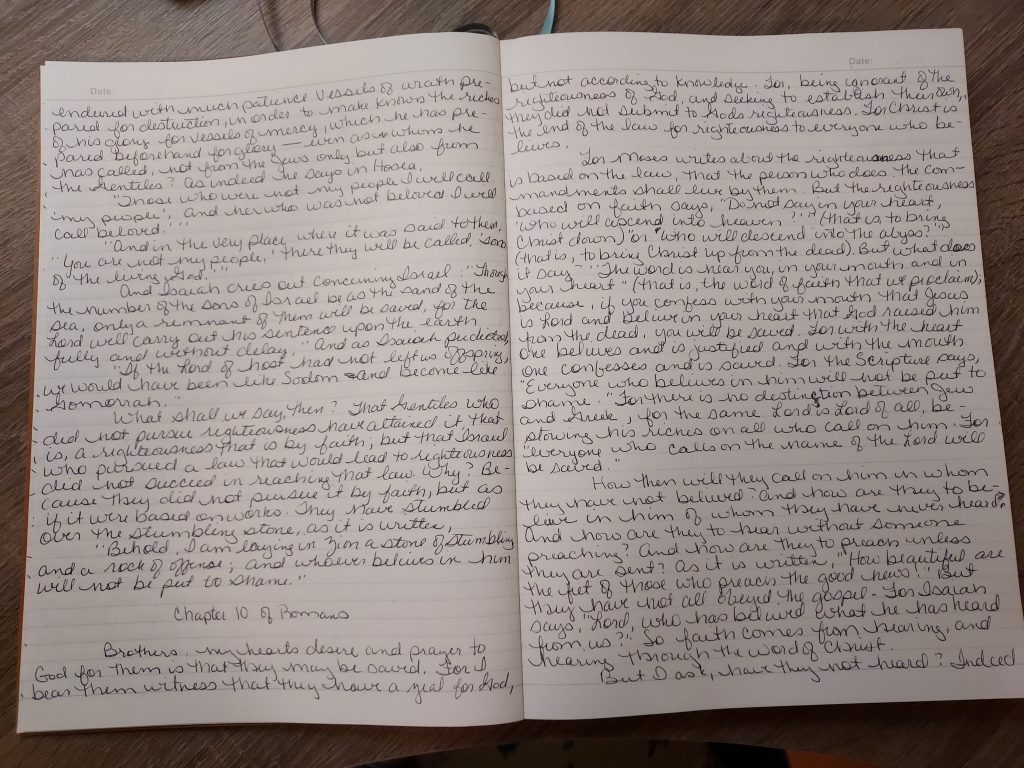 Date:
endured with much patience vessels of wrath pre-
pared for destruction, in order to make known the riches
of his glory for vessels of mercy, which he has pre-
pared beforehand for glory — even as whom he
has called, not from the Jews only but also from
the Gentiles? As indeed he says in Hosea,
"Those who were not my people I will call
'my people', and her who was not beloved I will
call 'beloved.'"
"And in the very place where it was said to them,
'You are not my people,' there they will be called, sons
of the living God.'"
And Isaiah cries out concerning Israel: "Though
the number of the sons of Israel be as the sand of the
sea, only a remnant of them will be saved, for the
Lord will carry out his sentence upon the earth
fully and without delay." And as Isaiah predicted,
"If the Lord of host had not left us offspring,
we would have been like Sodom and become like
Gomorrah."
What shall we say, then? That Gentiles who
did not pursue righteousness have attained it that
is, a righteousness that is by faith; but that Israel
who pursued a law that would lead to righteousness
did not succeed in reaching that law. Why? Be-
cause they did not pursue it by faith, but as
if it were based on works. They have stumbled
over the stumbling stone, as it is written,
"Behold, I am laying in Zion a stone of stumbling
and a rock of offense; and whoever believes in him
will not be put to shame."
Chapter 10 of Romans
Brothers, my hearts desire and prayer to
God for them is that they may be saved. For I
bear them witness that they have a zeal for God,
Date:
but not according to knowledge. For, being ignorant of the
righteousness of God, and seeking to establish their own,
they did not submit to Gods righteousness. For Christ is
the end of the law for righteousness to everyone who be-
lieves.
For Moses writes about the righteousness that
is based on the law, that the person who does the com-
mandments shall live by them. But the righteousness
based on faith says, "Do not say in your heart,
'Who will ascend into heaven?'" (that is, to bring
Christ down) or "'Who will descend into the abyss?'"
(that is, to bring Christ up from the dead). But what does
it say? "The word is near you, in your mouth and in
your heart" (that is, the word of faith that we proclaim);
because, if you confess with your mouth that Jesus
is Lord and believe in your heart that God raised him
from the dead, you will be saved. For with the heart
one believes and is justified and with the mouth
one confesses and is saved. For the Scripture says,
"Everyone who believes in him will not be put to
shame." For there is no distinction between Jew
and Greek; for the same Lord is Lord of all, be-
stowing his riches on all who call on him. For
"everyone who calls on the name of the Lord will
be saved."
How then will they call on him in whom
they have not belived? And how are they to be-
lieve in him of whom they have never heard?
And how are they to hear without someone
preaching? And how are they to preach unless
they are sent? As it is written, "How beautiful are
the feet of those who preach the good news!" But
they have not all obeyed the gospel. For Isaiah
says, "Lord, who has belived what he has heard
from us?" So faith comes from hearing, and
hearing through the word of Christ.
But I ask, have they not heard? Indeed